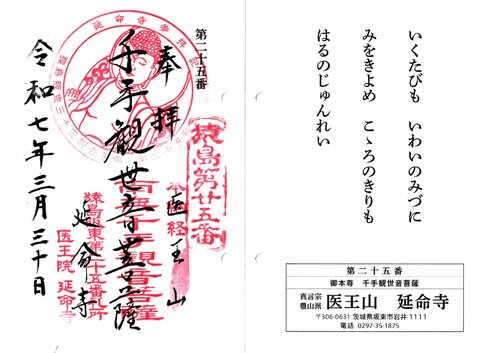 いくたびも　いわいのみづに
みをきよめ　こゝろのきりも
はるのじゅんれい
第二十五番
御本尊　千手観世音菩薩
真言宗
豊山派
医王山　延命寺
〒306-0631 茨城県坂東市岩井 1111
電話　0297-35-1875
第二十五番
奉拝
猿島第廿五番
医王山
千手観世音菩薩
延命寺
猿島関東第二十五番札所
医王院　延命寺
令和七年三月三十日